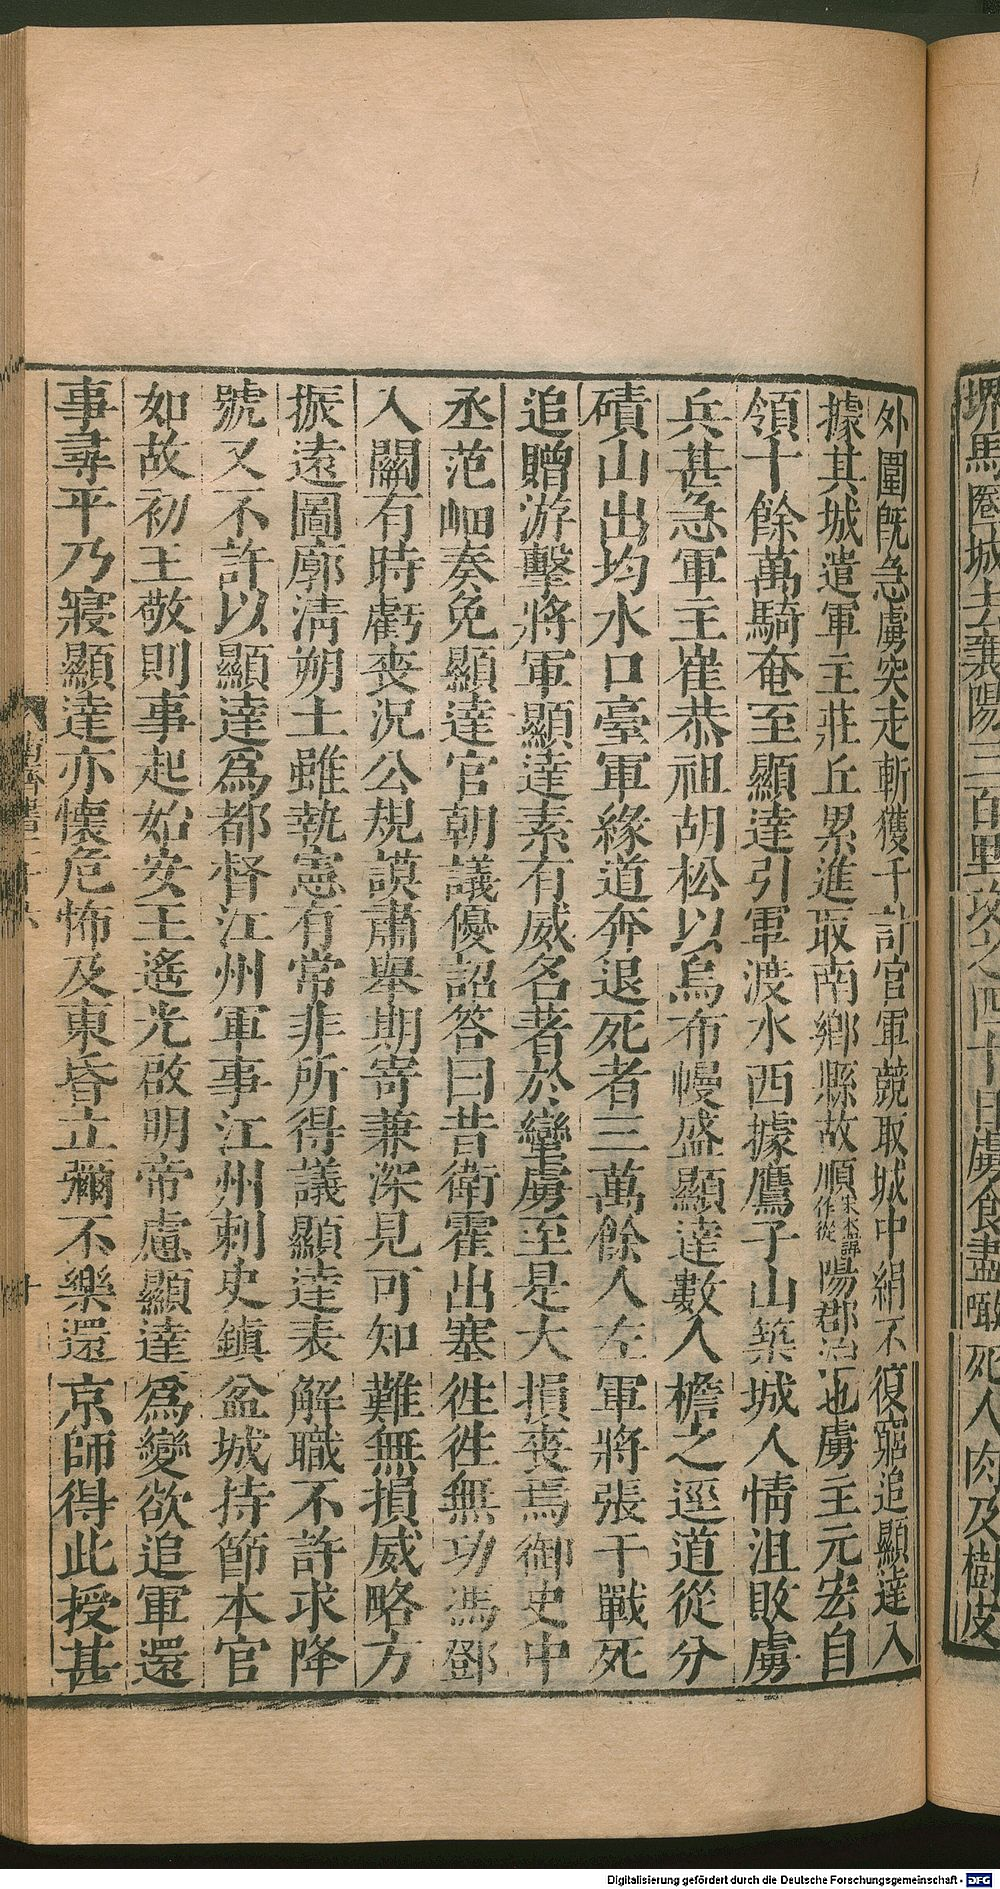 堺馬圈城去襄陽三百里攻之四十日虜食盡噉死人肉及樹皮
外圍旣急虜突走斬獲千計官軍競取城中絹不復窮追顯達入
據其城遣軍主莊丘累進取南鄉縣故順宋本諱作從陽郡治也虜主元宏自
領十餘萬騎奄至顯達引軍渡水西據鷹子山築城人情沮敗虜
兵甚急軍主崔恭祖胡松以烏布幔盛顯達數人檐之逕道從分
磧山出均水口臺軍緣道奔退死者三萬餘人左軍將張千戰死
追贈游擊將軍顯達素有威名著於蠻虜至是大損喪焉御史中
丞范岫奏免顯達官朝議優詔答曰昔衛霍出塞徃徃無功馮鄧
入關有時虧喪況公規謨肅舉期寄兼深見可知難無損威略方
振遠圖廓淸朔土雖執憲有常非所得議顯達表解職不許求降
號又不許以顯達爲都督江州軍事江州刺史鎮盆城持節本官
如故初王敬則事起始安王遙光啟明帝慮顯達爲變欲追軍還
事尋平乃寢顯達亦懷危怖及東昏立彌不樂還京師得此授甚
Digitalisierung gefördert durch die Deutsche Forschungsgemeinschaft - DFG